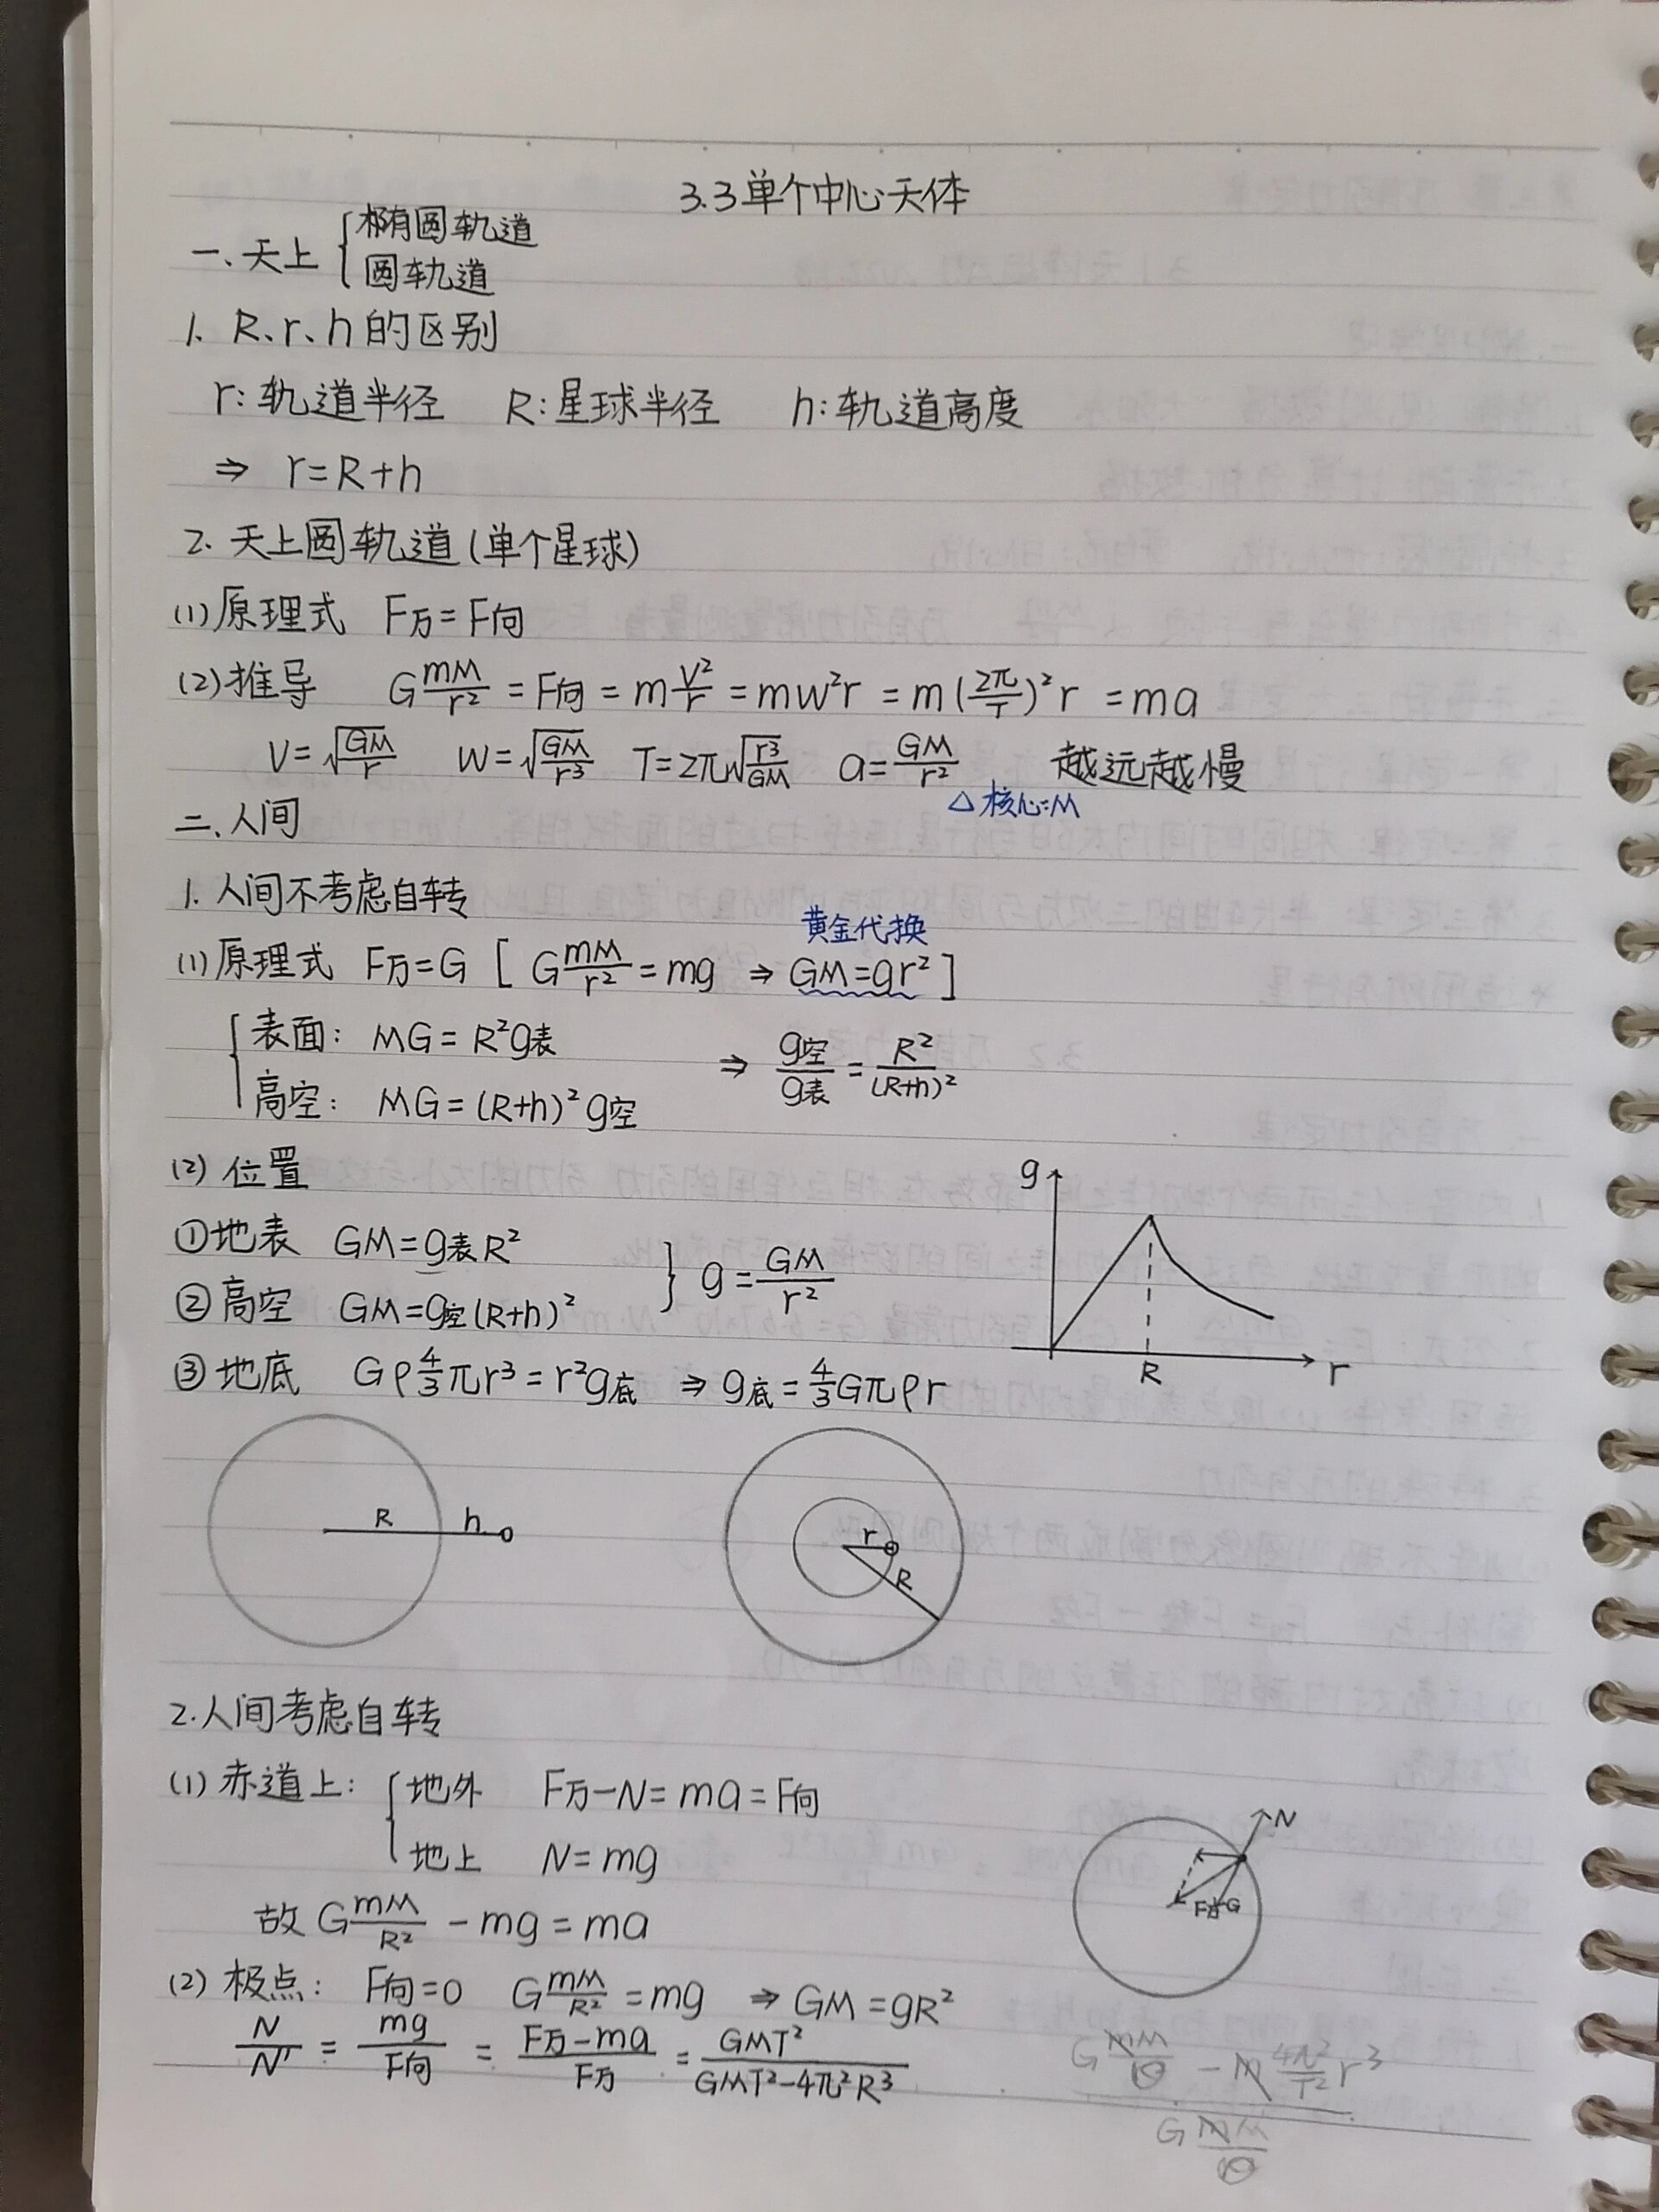 3.3 单个中心天体
一、天上 { 椭圆轨道
圆轨道
1. R、r、h的区别
r: 轨道半径 R: 星球半径 h: 轨道高度
⇒ r=R+h
2. 天上圆轨道(单个星球)
(1) 原理式 F万=F向
(2) 推导 G mM/r² = F向 = m v²/r = mw²r = m(2π/T)²r = ma
V=√(GM/r) W=√(GM/r³) T=2π√(r³/GM) a=GM/r² 越远越慢
△核心:M
二、人间
1. 人间不考虑自转
黄金代换
(1) 原理式 F万=G [ G mM/r² = mg ⇒ GM=gr² ]
{ 表面: MG=R²g表 ⇒ g空/g表 = R²/(R+h)²
高空: MG=(R+h)²g空
(2) 位置
①地表 GM=g表R²
②高空 GM=g空(R+h)² } g=GM/r²
③地底 Gρ 4/3 πr³=r²g底 ⇒ g底=4/3 Gπρr
g
R
r
R h
r
R
2. 人间考虑自转
(1) 赤道上: { 地外 F万-N=ma=F向
地上 N=mg
故 G mM/R² - mg = ma
N
F万 G
(2) 极点: F向=0 G mM/R² = mg ⇒ GM=gR²
N/N' = mg/F向 = (F万-ma)/F万 = GMT²/(GMT²-4π²R³)